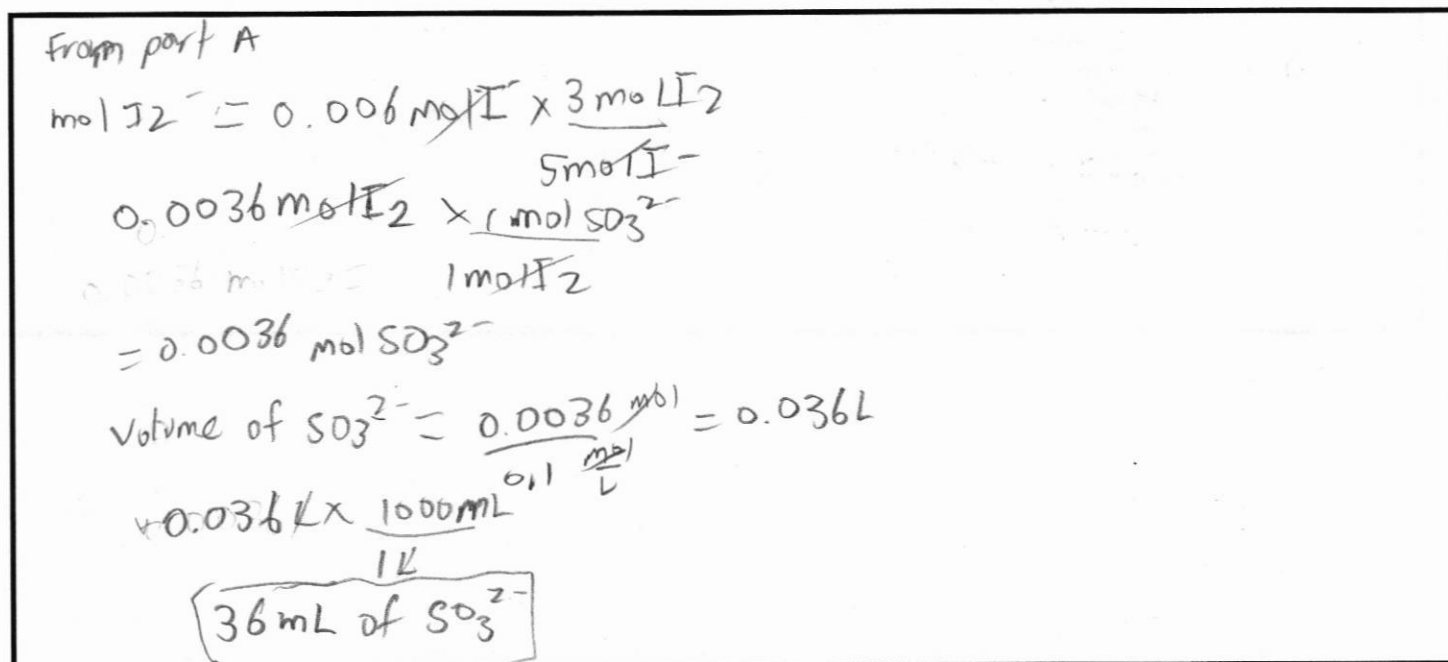 From part A
mol I2⁻ = 0.006 mol I⁻ × 3 mol I2
5 mol I⁻
0.0036 mol I2 × 1 mol SO3²⁻
1 mol I2
= 0.0036 mol SO3²⁻
Volume of SO3²⁻ = 0.0036 mol = 0.036L
0.1 mol
L
0.036 L × 1000 mL
1 L
36 mL of SO3²⁻